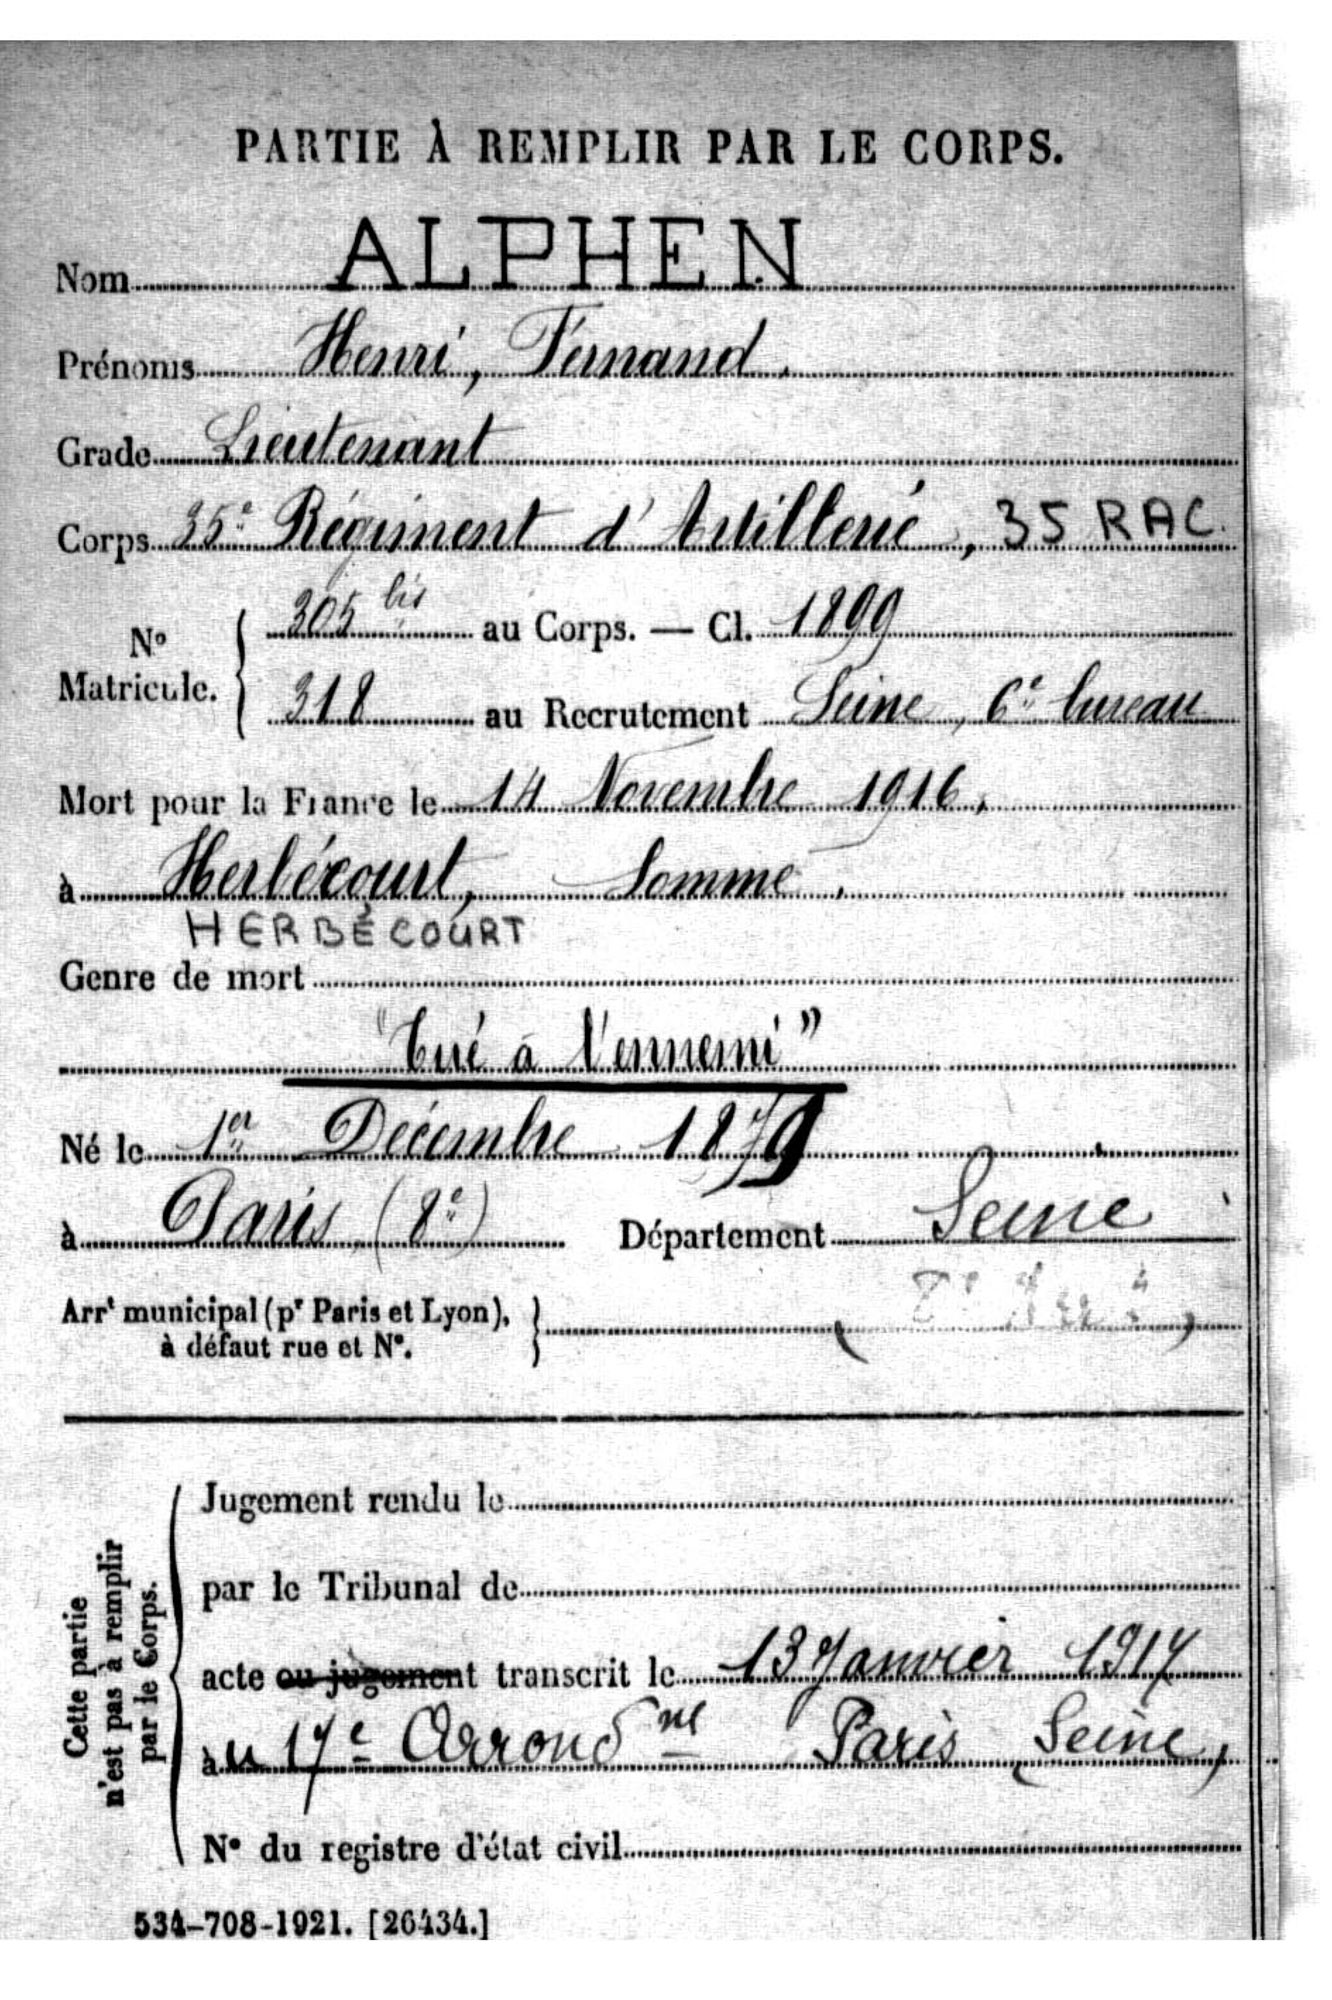 PARTIE À REMPLIR PAR LE CORPS.
Nom ALPHEN
Prénoms Henri, Fernand.
Grade Lieutenant
Corps 35e Régiment d'Artillerie, 35 RAC.
No Matricule. { 305 bis au Corps. — Cl. 1899
318 au Recrutement Seine, 6e bureau
Mort pour la France le 14 Novembre 1916,
à Herbécourt, Somme.
HERBÉCOURT
Genre de mort
"Tué à l'ennemi"
Né le 1er Décembre 1879
à Paris (8e) Département Seine
Arrt municipal (pr Paris et Lyon), à défaut rue et No. }
Cette partie n'est pas à remplir par le Corps.
Jugement rendu le
par le Tribunal de
acte ou jugement transcrit le 13 Janvier 1917
au 17e Arrondme Paris (Seine)
No du registre d'état civil
534-708-1921. [26434.]